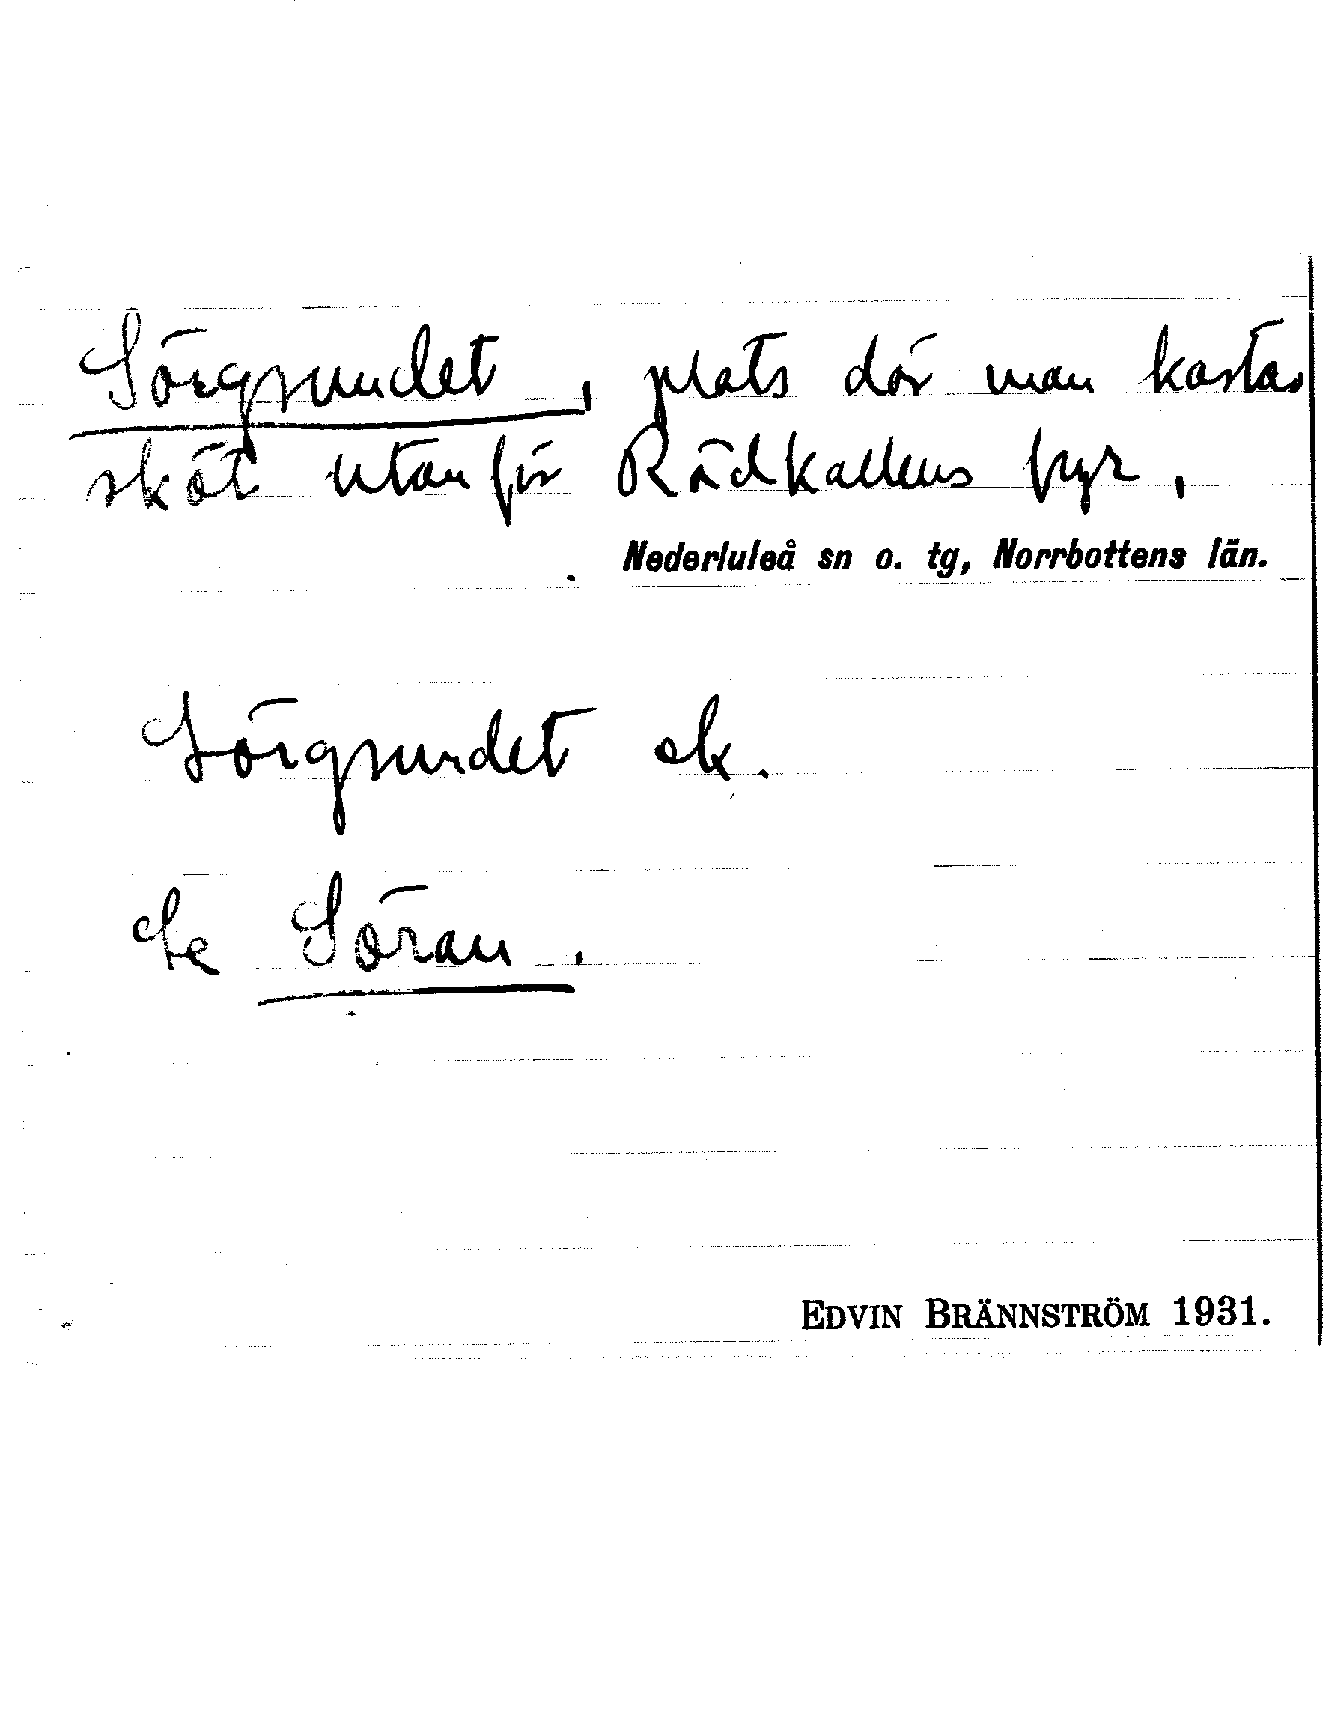 Sörgrundet, plats där man kastar
sköt utanför Rödkallens fyr,
Nederluleå sn o. tg, Norrbottens län.
Sörgrundet ek.
Se Söran.
EDVIN BRÄNNSTRÖM 1931.